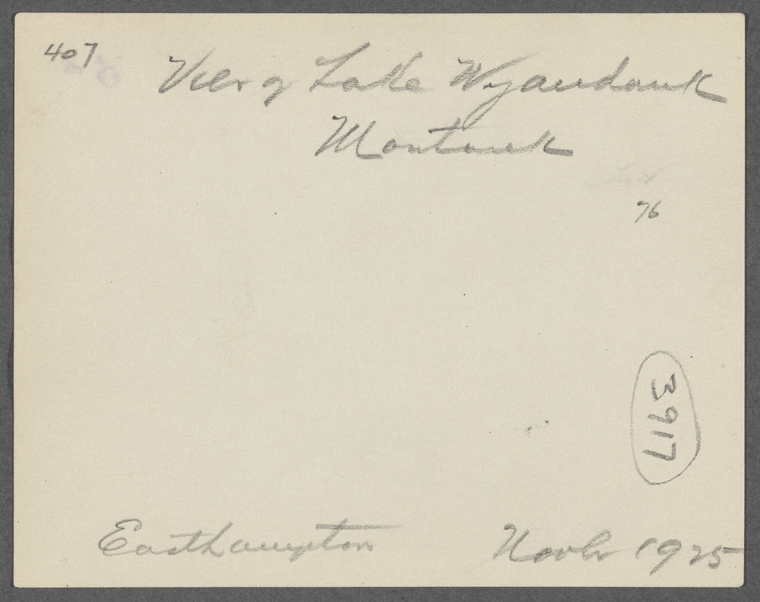 407
View of Lake Wyandank
Montauk
76
3917
Easthampton
Novbr 1925